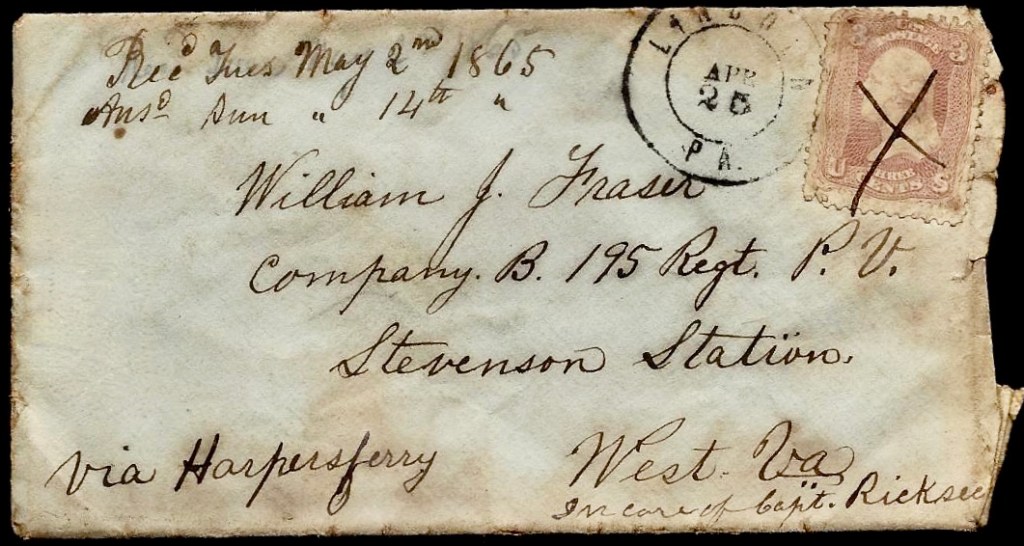 Rec'd Tues May 2nd 1865
Ansd Sun " 14th "
LINCOLN
APR
25
PA.
3 3
U THREE S
CENTS
William J. Fraser
Company. B. 195 Regt. P. V.
Stevenson Station.
West. Va
via Harpersferry
In care of Capt.